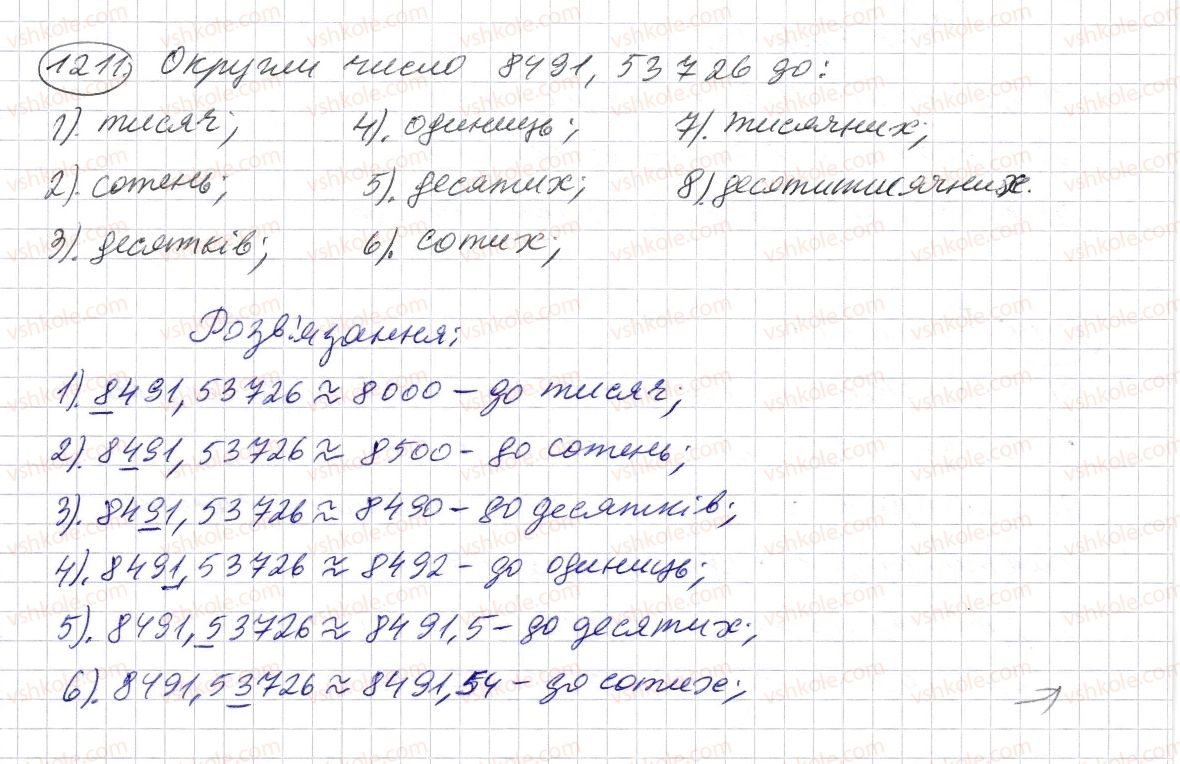 1211. Округли число 8491,53726 до:
1). тисяч; 4). одиниць; 7). тисячних;
2). сотень; 5). десятих; 8). десятитисячних.
3). десятків; 6). сотих;
Розв'язання:
1). 8491,53726 ≈ 8000 – до тисяч;
2). 8491,53726 ≈ 8500 – до сотень;
3). 8491,53726 ≈ 8490 – до десятків;
4). 8491,53726 ≈ 8492 – до одиниць;
5). 8491,53726 ≈ 8491,5 – до десятих;
6). 8491,53726 ≈ 8491,54 – до сотих;